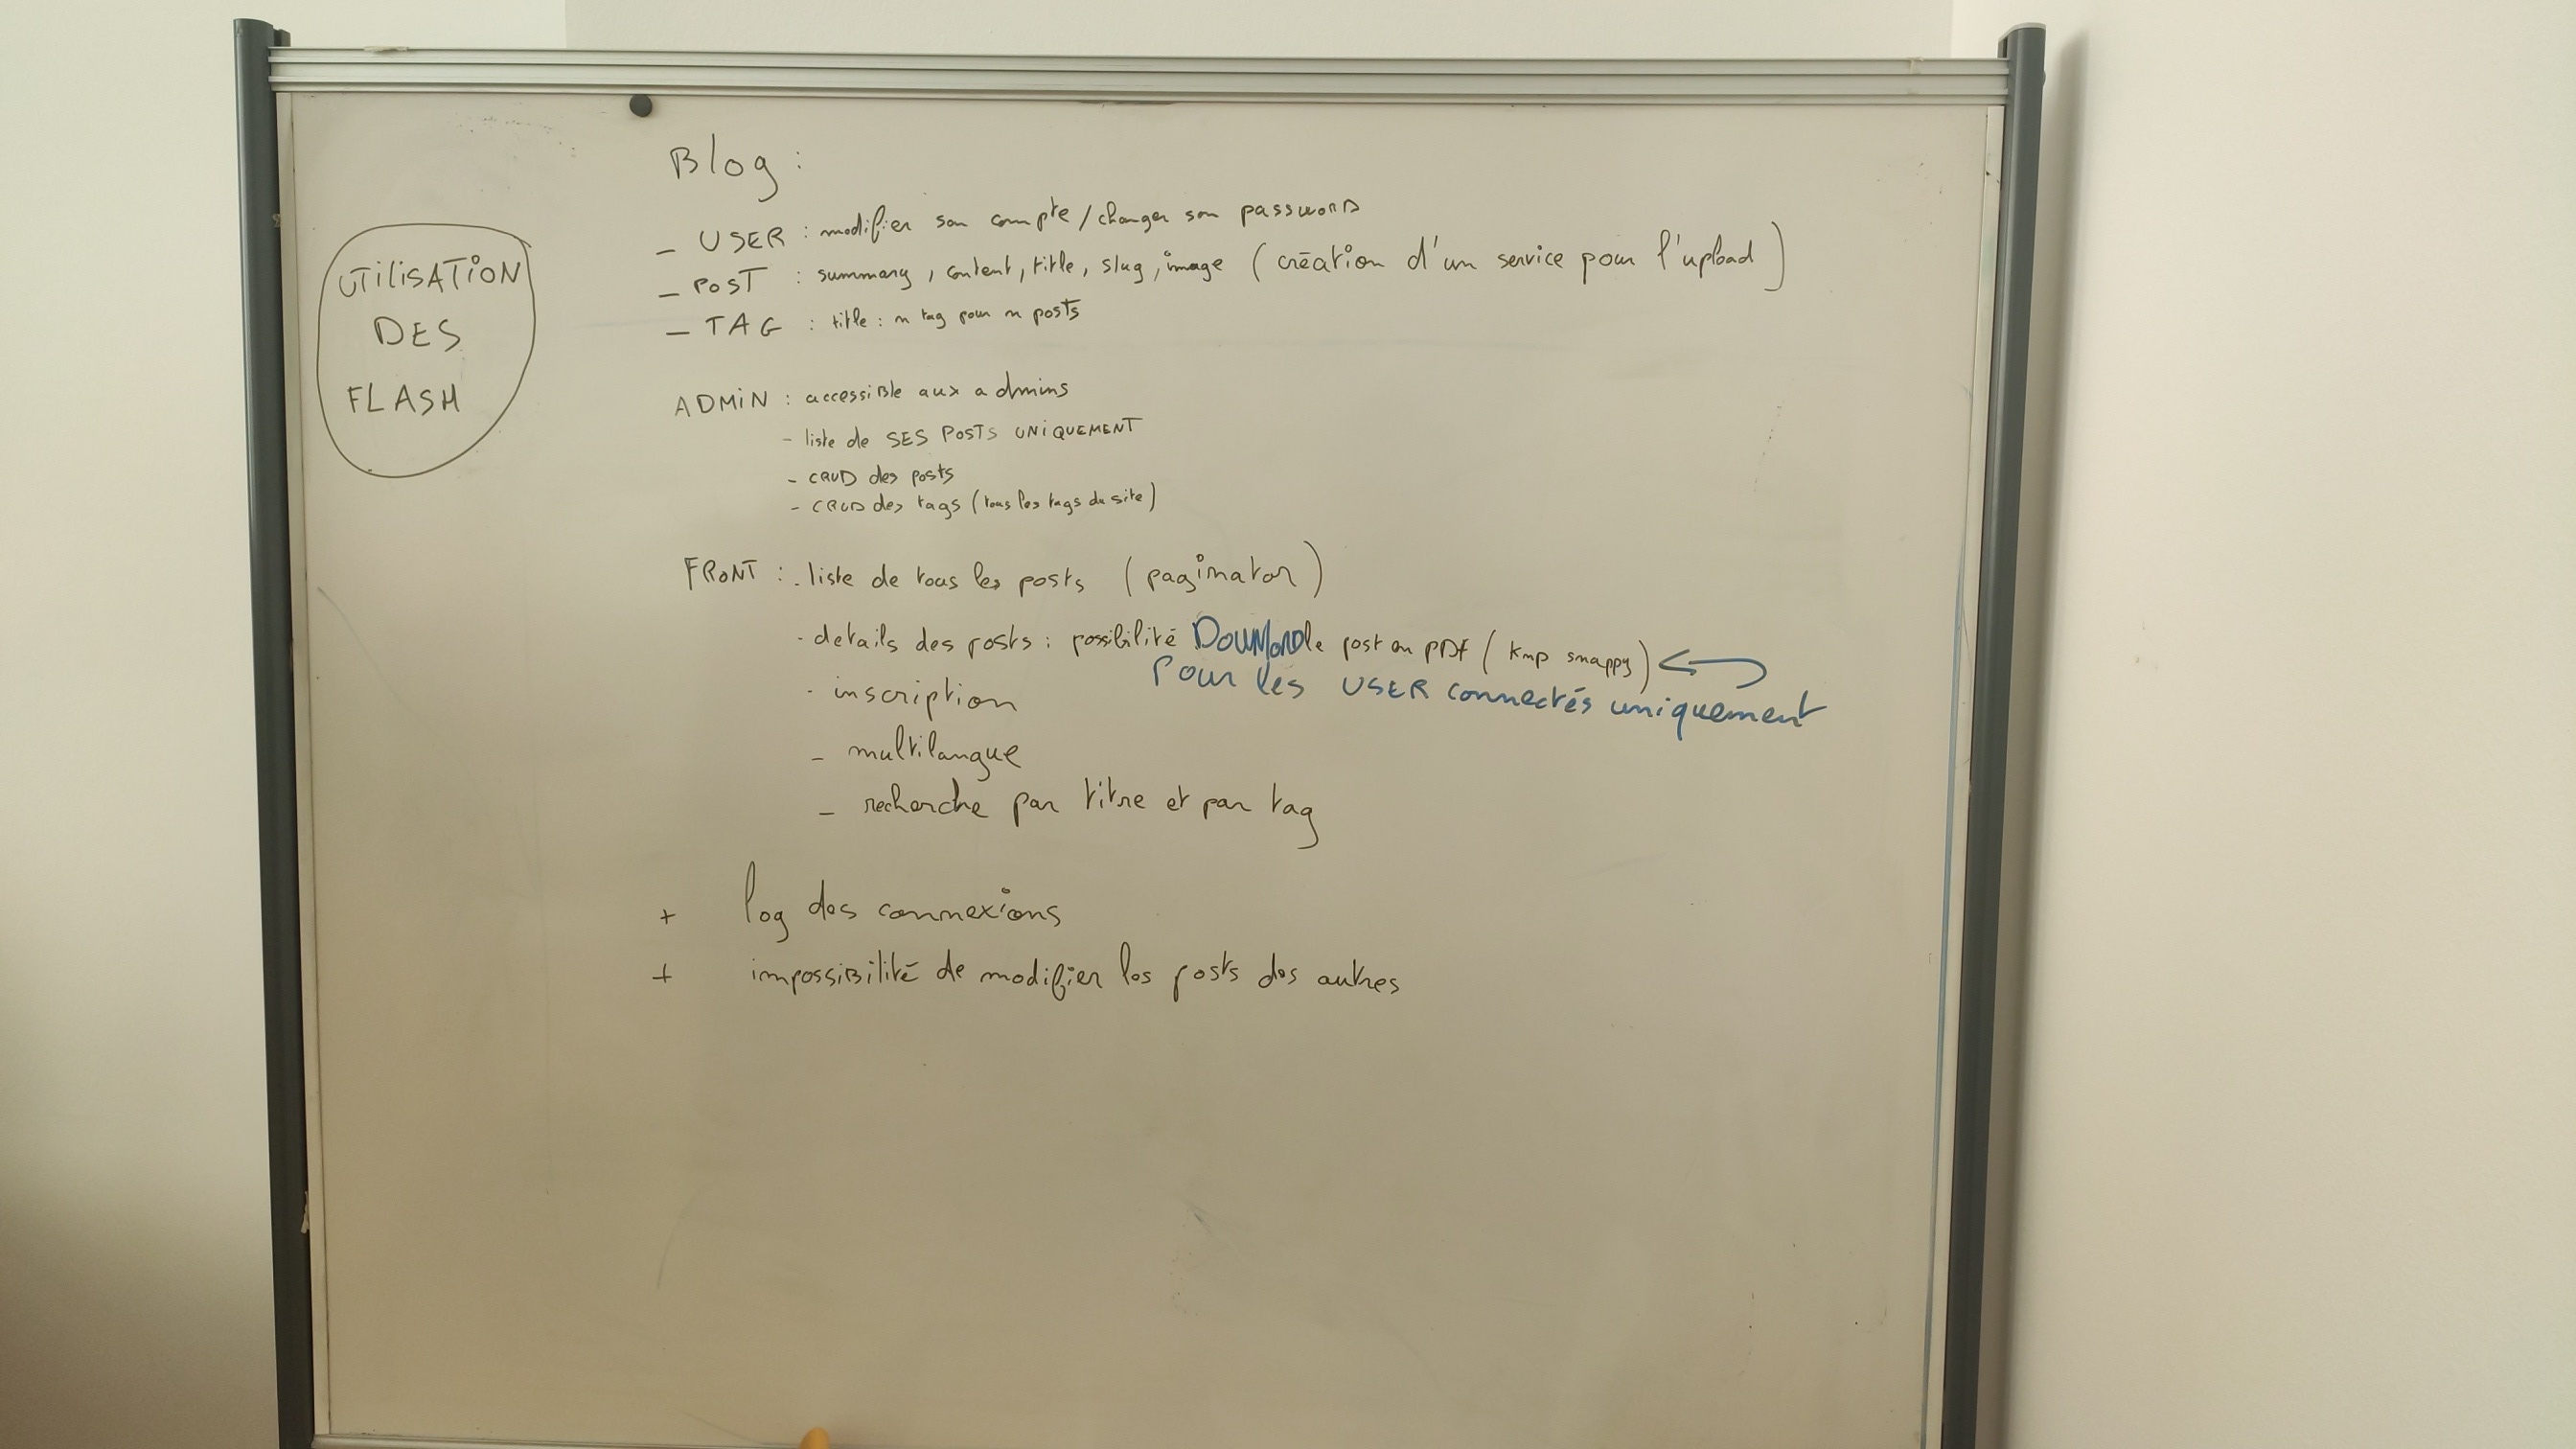 Blog :
UTILISATION
DES
FLASH
_ USER : modifier son compte / changer son password
_ POST : summary, content, title, slug, image (création d'un service pour l'upload)
_ TAG : title : n tag pour n posts
ADMIN : accessible aux admins
- liste de SES POSTS UNIQUEMENT
- CRUD des posts
- CRUD des tags (tous les tags du site)
FRONT : . liste de tous les posts (paginator)
. details des posts : possibilité Download le post en PDF (knp snappy)
Pour les USER connectés uniquement
. inscription
_ multilangue
_ recherche par titre et par tag
+ log des connexions
+ impossibilité de modifier les posts des autres